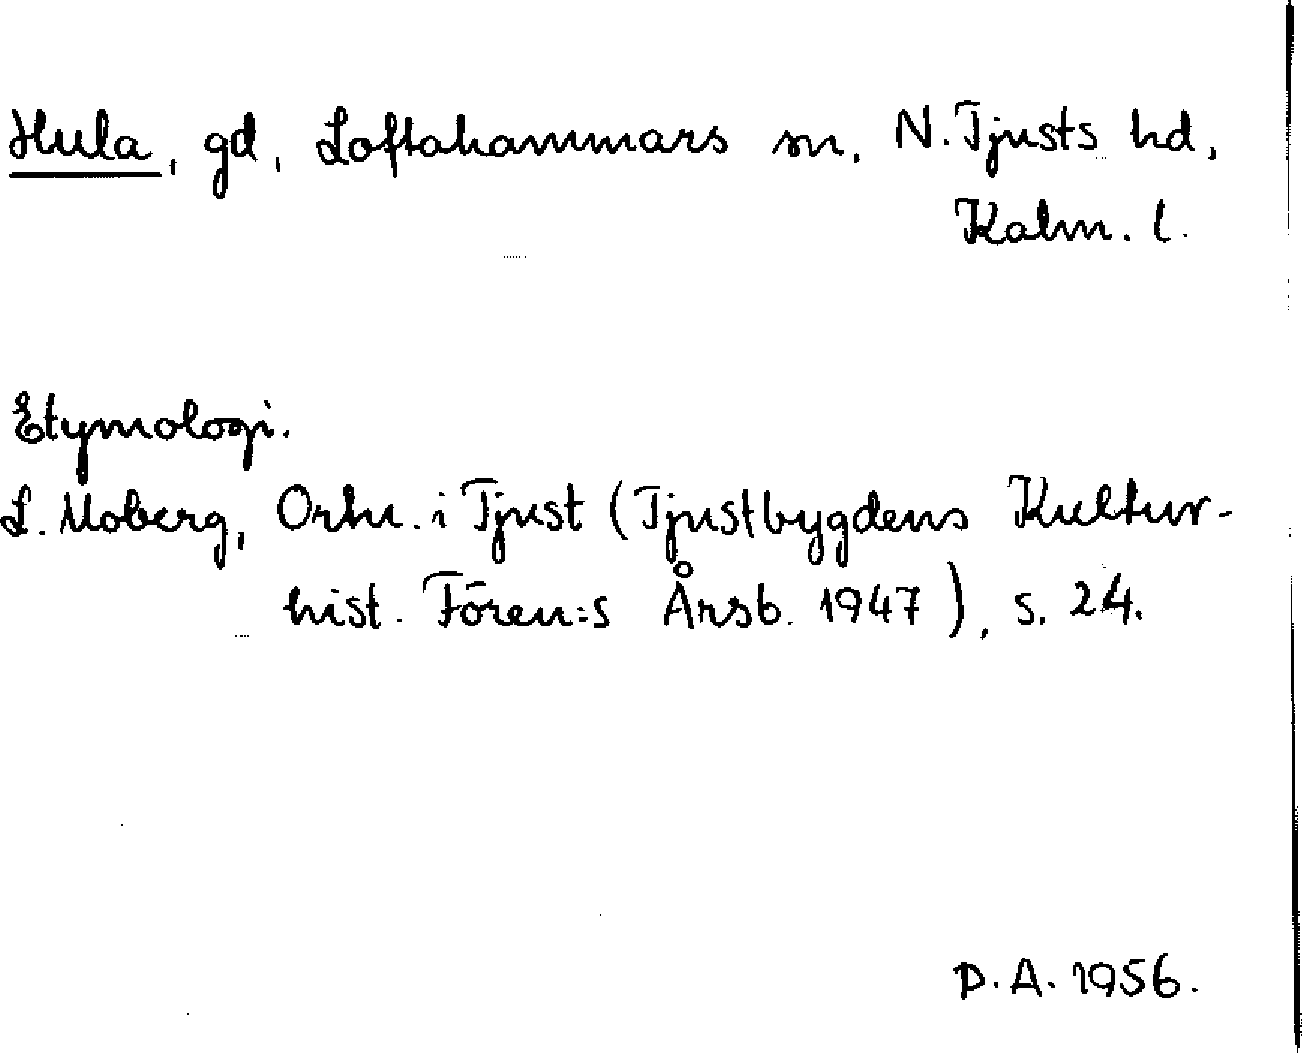 Hula, gd, Loftahammars sn, N. Tjusts hd,
Kalm. l.
Etymologi.
L. Moberg, Ortn. i Tjust (Tjustbygdens Kultur-
hist. Fören:s Årsb. 1947), s. 24.
P. A. 1956.